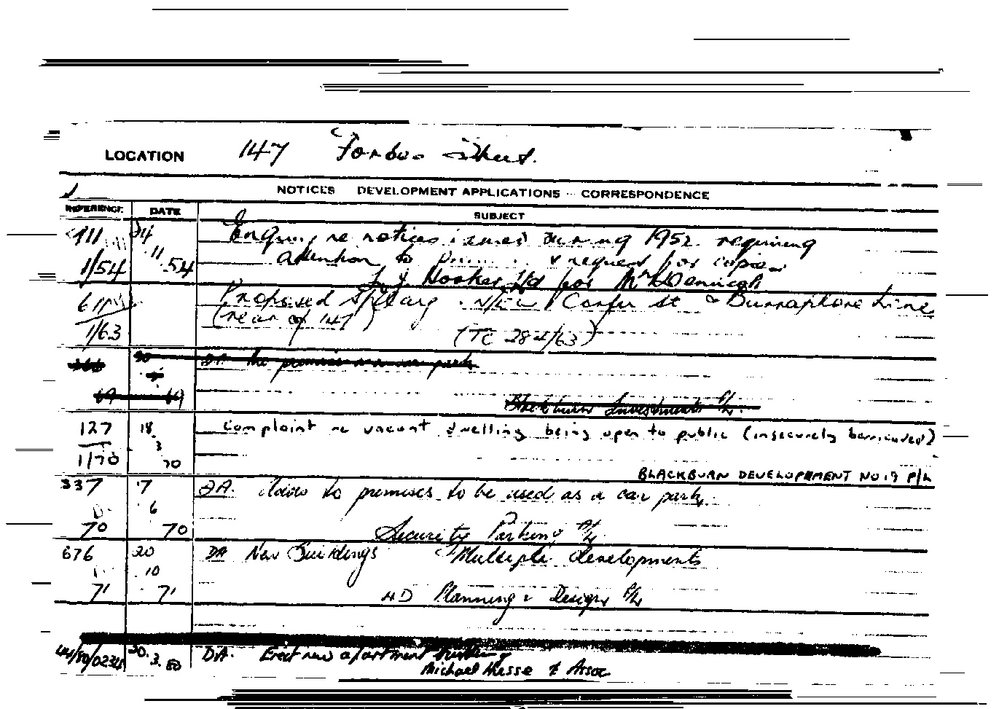 LOCATION 147 Forbes Street.
NOTICES DEVELOPMENT APPLICATIONS - CORRESPONDENCE
REFERENCE DATE SUBJECT
911 24 Enquiry re notices issued during 1952 requiring
1/54 11 54 attention to & request for copies
L J Hooker Ltd for
611 Proposed Splay Cnr Street & Lane
1/63 (rear of 147) (TC 284/63)
DA the premises as a car park
69 69 Blackburn Investments P/L.
127 18 Complaint re vacant dwelling being open to public (insecurely barricaded)
1/70 3 70
BLACKBURN DEVELOPMENT NO 19 P/L
337 7 DA. to premises to be used as a car park.
6
70 70 Security Parking P/L
676 20 DA New Buildings Multiple developments
10
71 71 HD Planning & Design P/L
44/80/0235 20.3.80 DA. Erect new apartment
Michael Hesse & Assoc